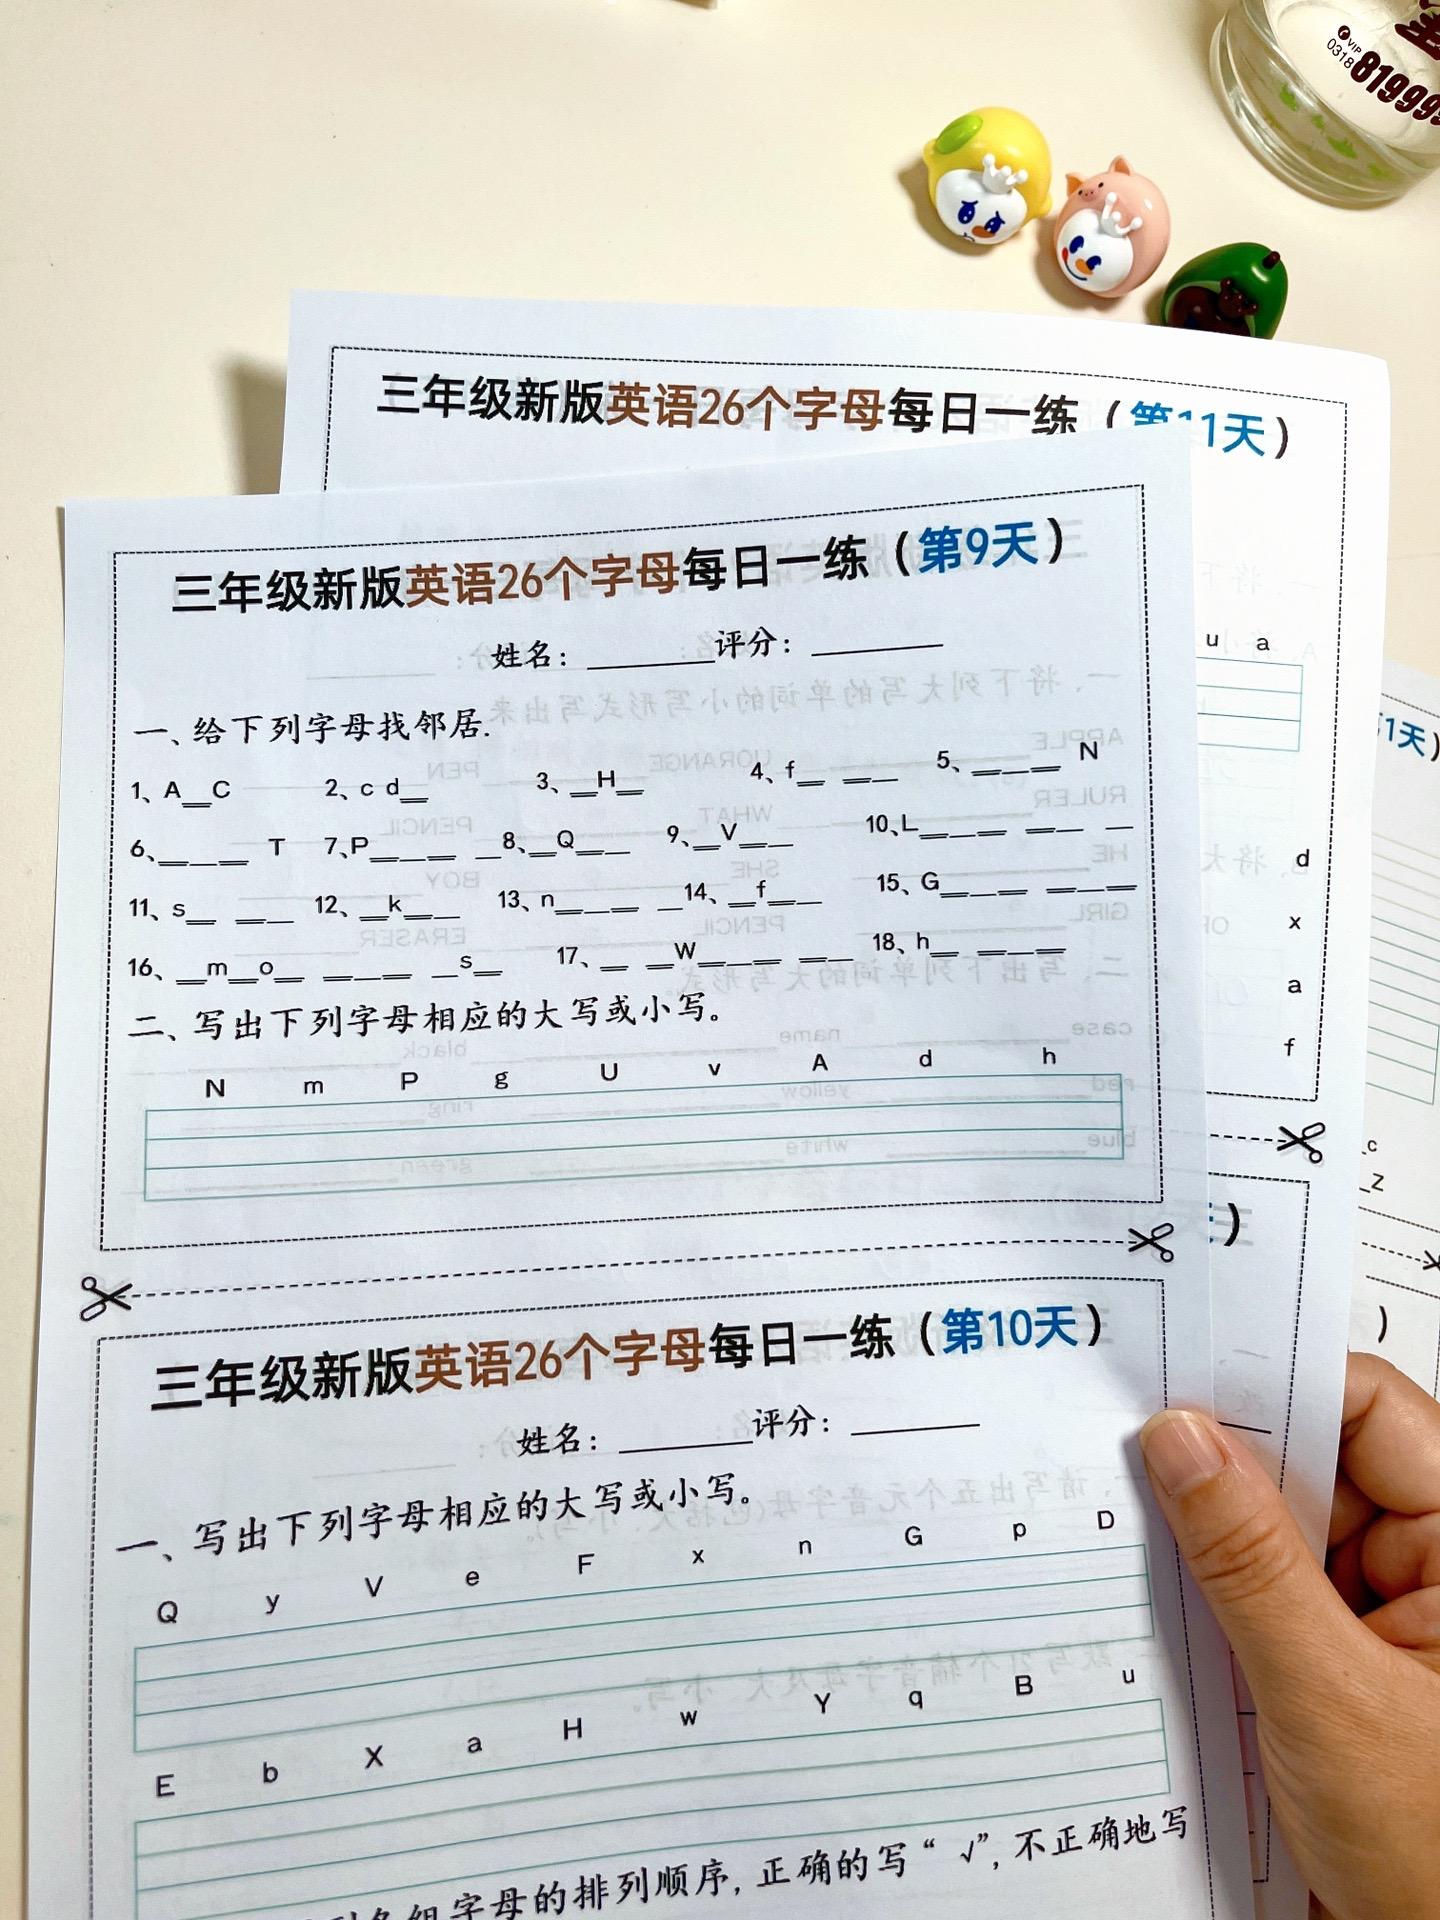 VIP
0318
三年级新版英语26个字母每日一练（第11天）
u a
d
x
a
f
1天）
c
Z
三年级新版英语26个字母每日一练（第9天）
姓名：______评分：______
一、给下列字母找邻居.
1、A__C 2、c d__ 3、__H__ 4、f__ __ __ 5、__ __ __ N
6、__ __ __ T 7、P__ __ __ __ 8、__Q__ __ 9、__V__ __ 10、L__ __ __ __ __ __
11、s__ __ __ 12、__k__ __ 13、n__ __ __ __ 14、__f__ __ 15、G__ __ __ __ __ __
16、__m__o__ __ __ __ __s__ 17、__ __W__ __ __ __ __ 18、h__ __ __ __
二、写出下列字母相应的大写或小写。
N m P g U v A d h
三年级新版英语26个字母每日一练（第10天）
姓名：______评分：______
一、写出下列字母相应的大写或小写。
Q y V e F x n G p D
E b X a H w Y q B u
各组字母的排列顺序, 正确的写“ √”, 不正确地写